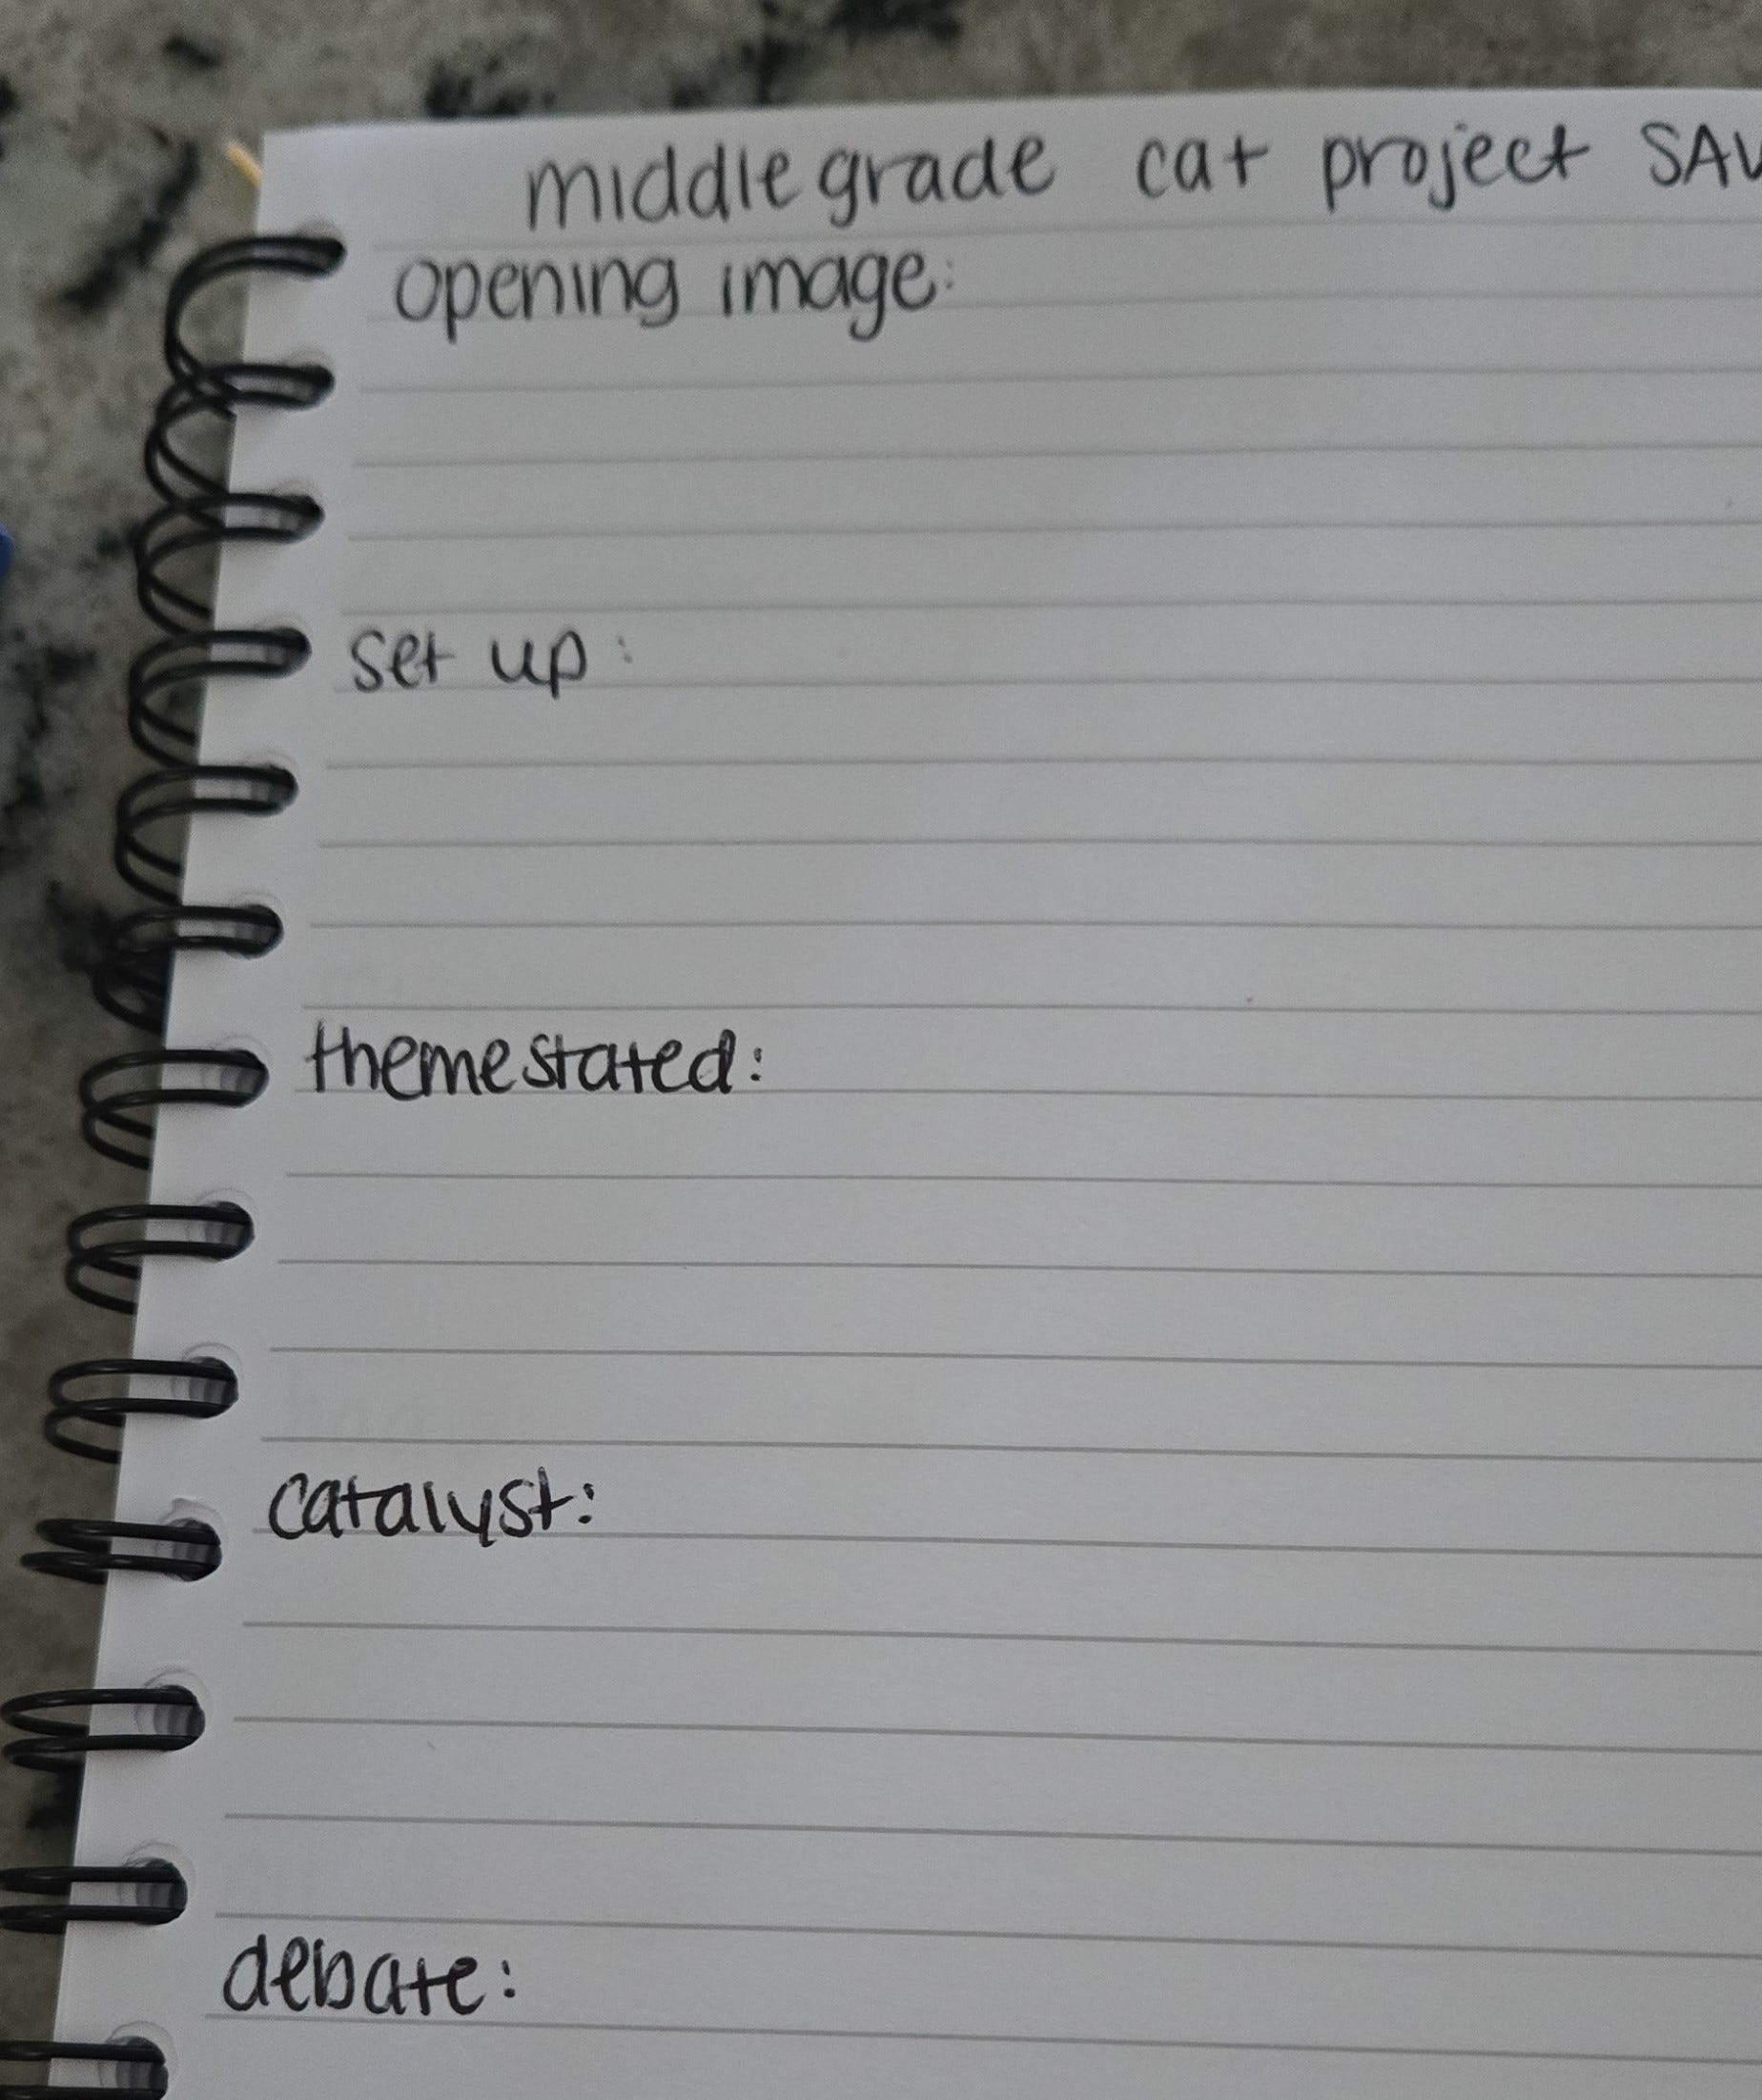 middle grade cat project SAV
opening image:
set up:
theme stated:
catalyst:
debate: